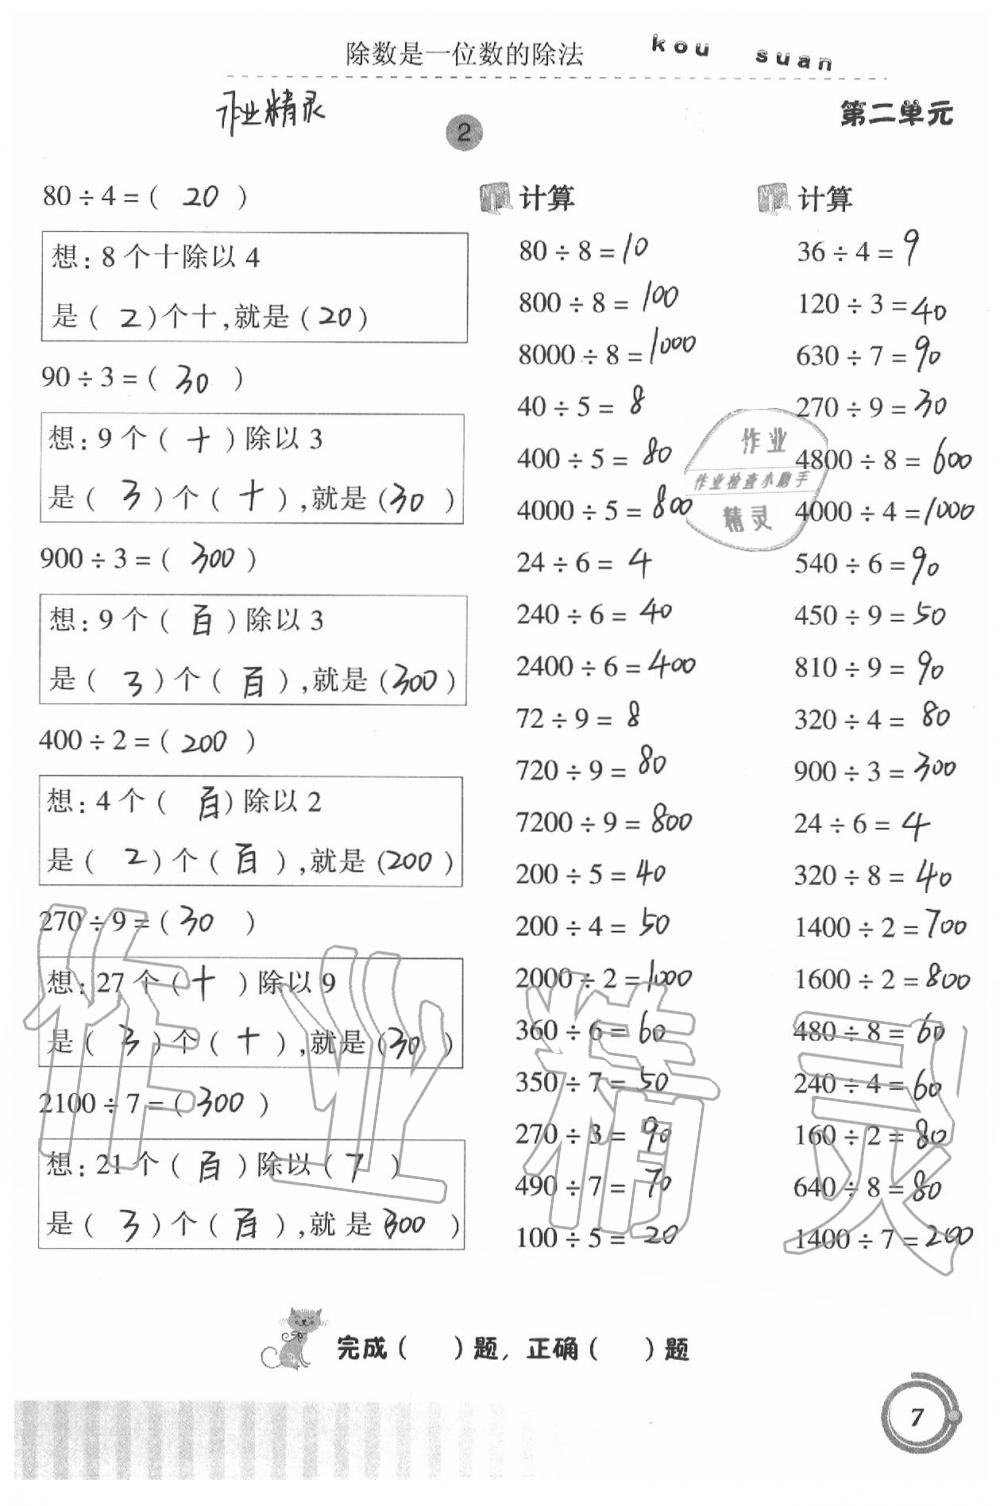 除数是一位数的除法
kou suan
作业精灵
2
第二单元
80÷4=( 20 )
想:8个十除以4
是( 2 )个十,就是(20)
90÷3=( 30 )
想:9个( 十 )除以3
是( 3 )个( 十 ),就是(30 )
900÷3=( 300 )
想:9个( 百 )除以3
是( 3 )个( 百 ),就是(300)
400÷2=( 200 )
想:4个( 百)除以2
是( 2 )个( 百 ),就是(200)
270÷9=( 30 )
想:27个( 十 )除以9
是( 3 )个( 十 ),就是(30 )
2100÷7=( 300 )
想:21个( 百 )除以( 7 )
是( 3 )个( 百 ),就是(300 )
计算
80÷8=10
800÷8=100
8000÷8=1000
40÷5=8
400÷5=80
4000÷5=800
24÷6=4
240÷6=40
2400÷6=400
72÷9=8
720÷9=80
7200÷9=800
200÷5=40
200÷4=50
2000÷2=1000
360÷6=60
350÷7=50
270÷3=90
490÷7=70
100÷5=20
计算
36÷4=9
120÷3=40
630÷7=90
270÷9=30
4800÷8=600
4000÷4=1000
540÷6=90
450÷9=50
810÷9=90
320÷4=80
900÷3=300
24÷6=4
320÷8=40
1400÷2=700
1600÷2=800
480÷8=60
240÷4=60
160÷2=80
640÷8=80
1400÷7=200
作业
作业检查小助手
精灵
作业精灵
完成( )题,正确( )题
7